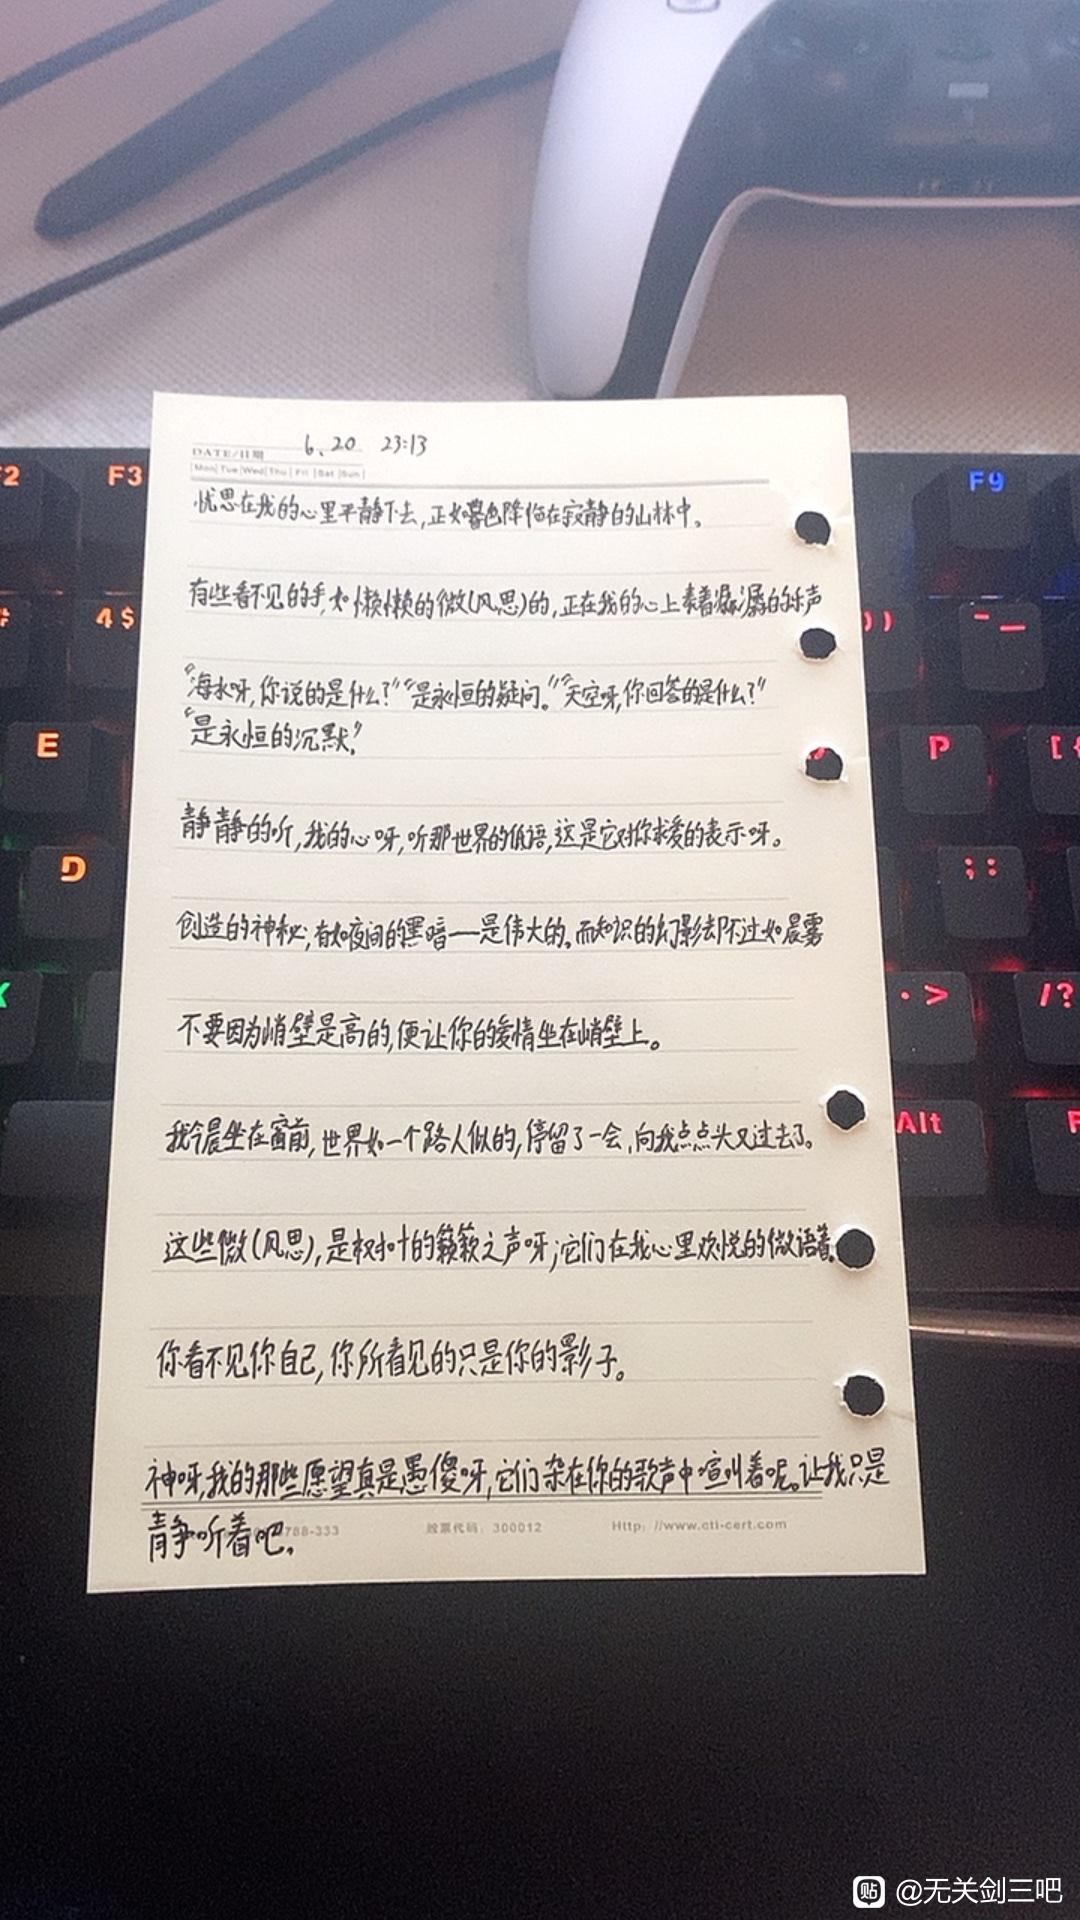 F2
F3
F9
4$
E
D
X
P
[{
;:
.>
/?
Alt
DATE/日期 6、20 23:13
Mon|Tue|Wed|Thu|Fri|Sat|Sun|
忧思在我的心里平静下去,正如暮色降临在寂静的山林中。
有些看不见的手,如懒懒的微(风思)的,正在我的心上奏着潺潺的乐声
“海水呀,你说的是什么?”“是永恒的疑问。”“天空呀,你回答的是什么?”
“是永恒的沉默。”
静静的听,我的心呀,听那世界的低语,这是它对你求爱的表示呀。
创造的神秘,有如夜间的黑暗——是伟大的。而知识的幻影却不过如晨雾
不要因为峭壁是高的,便让你的爱情坐在峭壁上。
我今晨坐在窗前,世界如一个路人似的,停留了一会,向我点点头又过去了。
这些微(风思),是权和叶的簌簌之声呀;它们在我心里欢悦的微语着。
你看不见你自己,你所看见的只是你的影子。
神呀,我的那些愿望真是愚傻呀,它们杂在你的歌声中喧叫着呢。让我只是
静听着吧。
788-333 股票代码:300012 Http://www.cti-cert.com
贴 @无关剑三吧